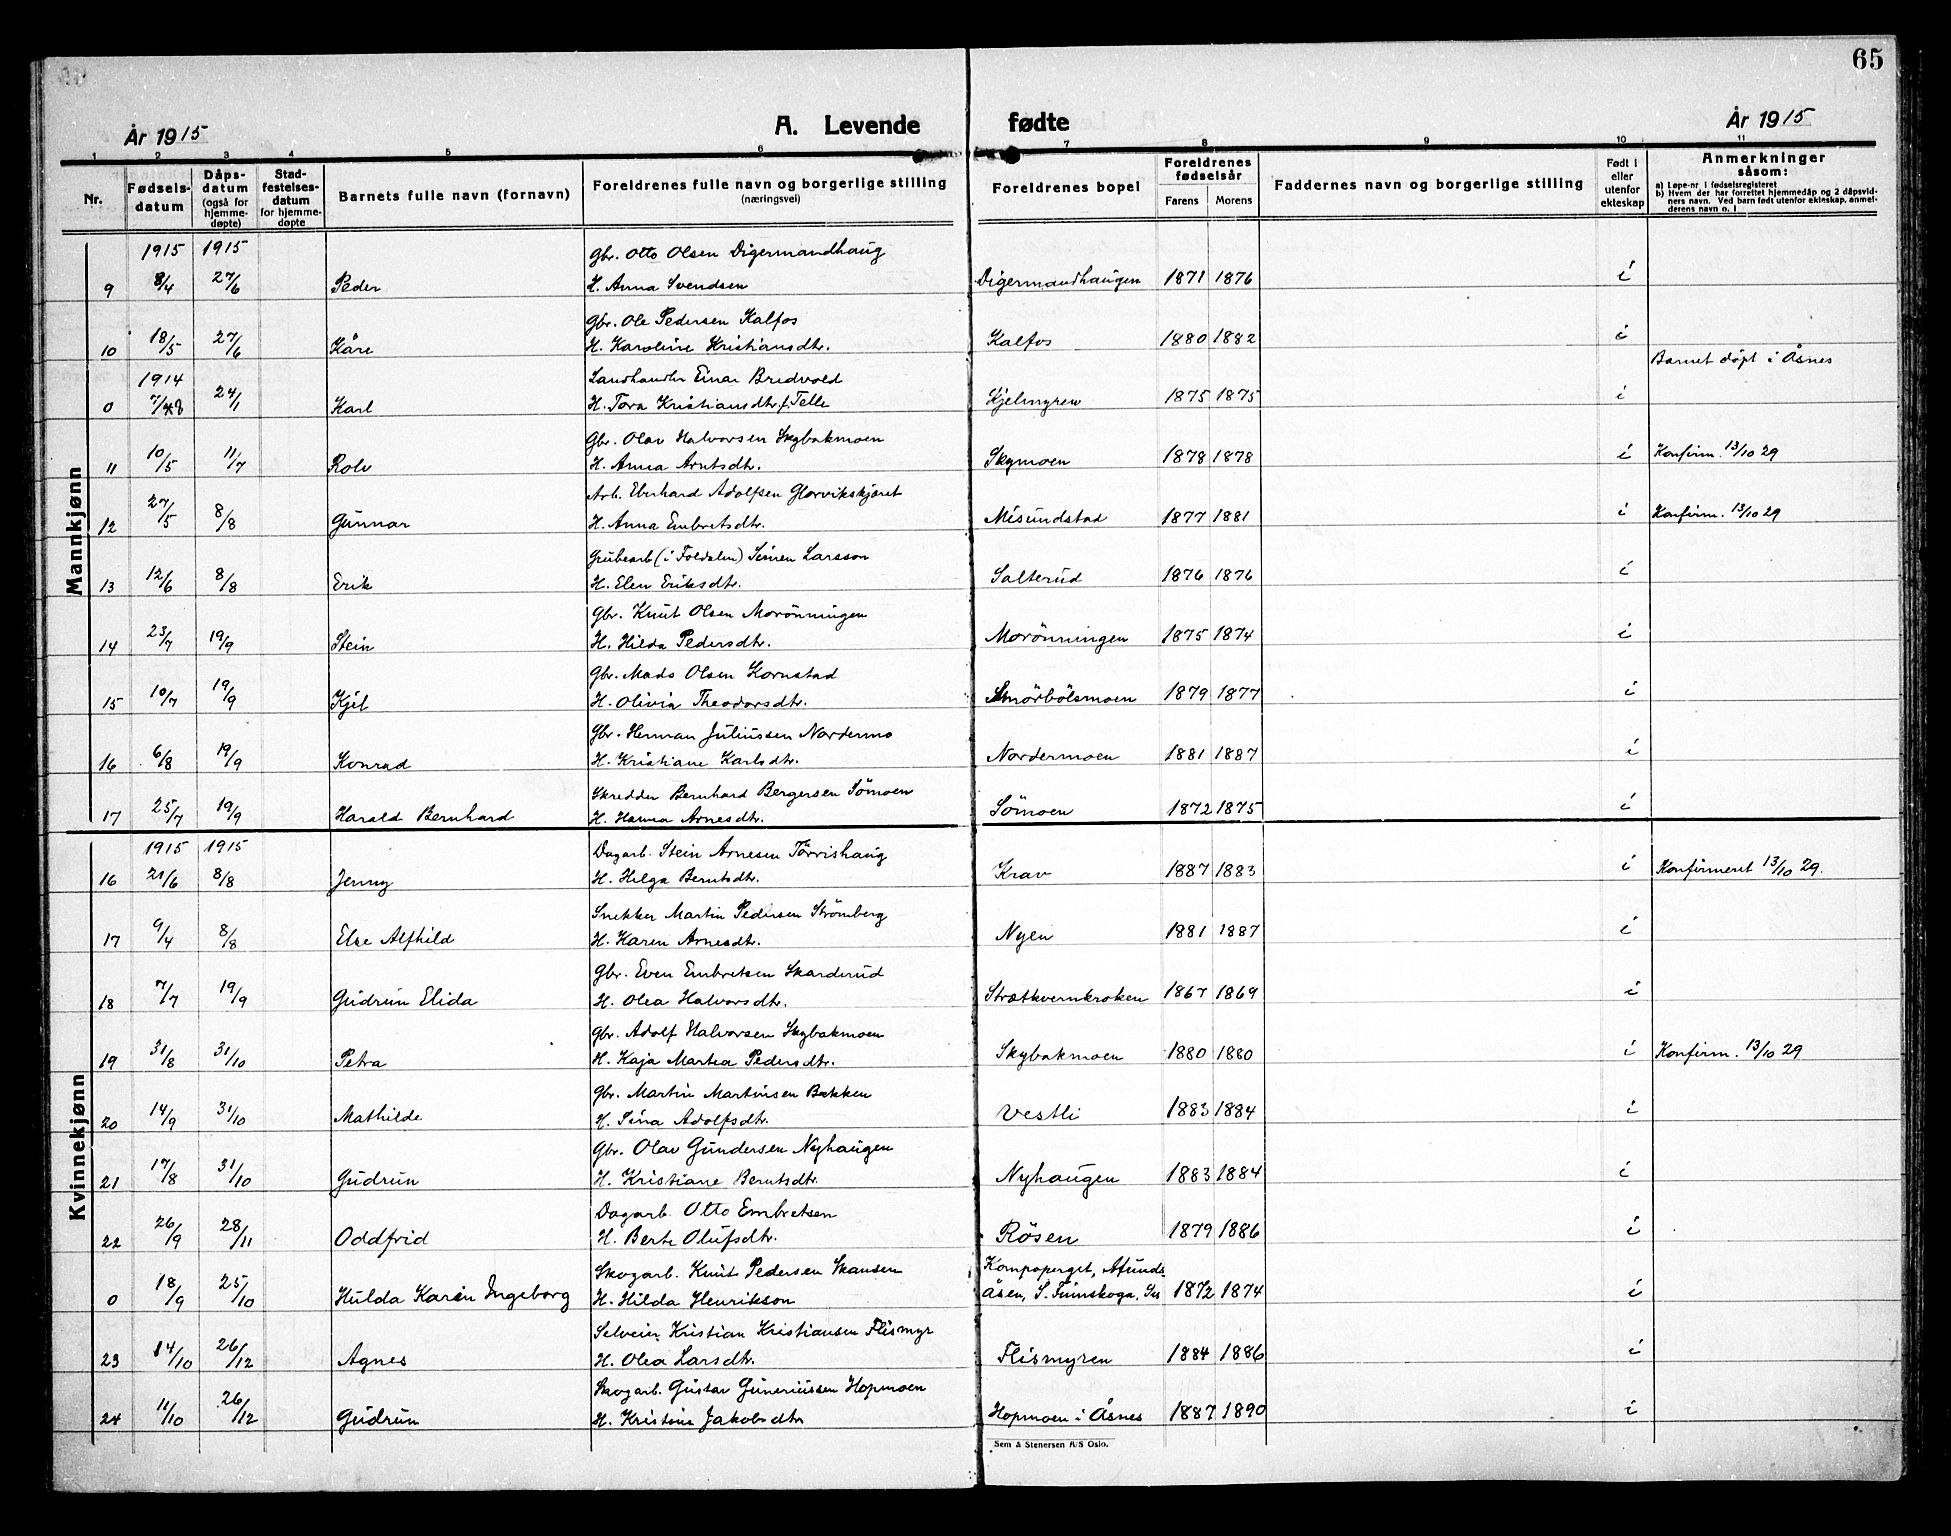 65
År 1915
A. Levende fødte
År 1915
1 2 3 4 5 6 7 8 9 10 11
Nr.
Fødsels-
datum
Dåps-
datum
(også for
hjemme-
døpte)
Stad-
festelses-
datum
for hjemme-
døpte
Barnets fulle navn (fornavn)
Foreldrenes fulle navn og borgerlige stilling
(næringsvei)
Foreldrenes bopel
Foreldrenes
fødselsår
Farens Morens
Faddernes navn og borgerlige stilling
Født i
eller
utenfor
ekteskap
Anmerkninger
såsom:
a) Løpe-nr i fødselsregisteret
b) Hvem der har forrettet hjemmedåp og 2 dåpsvid-
ners navn. Ved barn født utenfor ekteskap, anmel-
derens navn o. l
Mannkjønn
1915 1915 Gbr. Otto Olsen Digermandhaug
9 8/4 27/6 Peder H. Anna Svendsen Digermandhaugen 1871 1876 i
Gbr. Ole Pedersen Kalfos
10 18/5 27/6 Kåre H. Karoline Kristiansdtr. Kalfos 1880 1882 i
Barnet døpt i Åsnes
1914 Landhandler Einar Bredvold
0 24/1 Karl H. Tora Kristiansdtr. f. Telle Kjelmyren 1875 1875 i
Gbr. Olav Halvorsen Skybakmoen
11 10/5 11/7 Rolv H. Anna Arntsdtr. Skymoen 1878 1878 i Konfirm. 13/10 29
Arb. Eberhard Adolfsen Glorvikskjæret
12 27/5 8/8 Gunnar H. Anna Embretsdtr. Misundstad 1877 1881 i Konfirm. 13/10 29
Grubearb (i Foldalen) Simen Larsson
13 12/6 8/8 Erik H. Elen Eriksdtr. Salterud 1876 1876 i
Gbr. Knut Olsen Morönningen
14 23/7 19/9 Stein H. Hilda Pedersdtr. Morönningen 1875 1874 i
Gbr. Mads Olsen Kornstad
15 10/7 19/9 Kjel H. Olivia Theodorsdtr. Smörbölsmoen 1879 1877 i
Gbr. Herman Juliussen Nordermo
16 6/8 19/9 Konrad H. Kristiane Karlsdtr. Nordermoen 1881 1887 i
Skredder Bernhard Bergersen Sömoen
17 25/7 19/9 Harald Bernhard H. Hanna Arnesdtr. Sömoen 1872 1875 i
Kvinnekjønn
1915 1915 Dagarb. Stein Arnesen Törrishaug
16 21/6 8/8 Jenny H. Helga Berntsdtr. Krav 1887 1883 i Konfirmeret 13/10 29.
Snekker Martin Pedersen Strömberg
17 9/4 8/8 Else Alfhild H. Karen Arnesdtr. Nyen 1881 1887 i
Gbr. Even Embretsen Skarderud
18 7/7 19/9 Gudrun Elida H. Olea Halvorsdtr. Strætkvernkroken 1867 1869 i
Gbr. Adolf Halvorsen Skybakmoen
19 31/8 31/10 Petra H. Kaja Martea Pedersdtr. Skybakmoen 1880 1880 i Konfirm. 13/10 29
Gbr. Martin Martinsen Bakken
20 14/9 31/10 Mathilde H. Tina Adolfsdtr. Vestli 1883 1884 i
Gbr. Olav Gundersen Nyhaugen
21 17/8 31/10 Gudrun H. Kristiane Berntsdtr. Nyhaugen 1883 1884 i
Dagarb. Otto Embretsen
22 26/9 28/11 Oddfrid H. Berte Olufsdtr. Rösen 1879 1886 i
Skogarb. Knut Pedersen Skansen Kompoperget, Afunds
0 18/9 25/10 Hulda Karin Ingeborg H. Hilda Henrikson åsen, S. Finnskoga, 1872 1874 i
Selveier Kristian Kristiansen Flismyr
23 14/10 26/12 Agnes H. Olea Larsdtr. Flismyren 1884 1886 i
Skogarb. Gustav Guneriussen Hopmoen
24 11/10 26/12 Gudrun H. Kristine Jakobsdtr Hopmoen i Åsnes 1887 1890 i
Sem & Stenersen A/S Oslo.